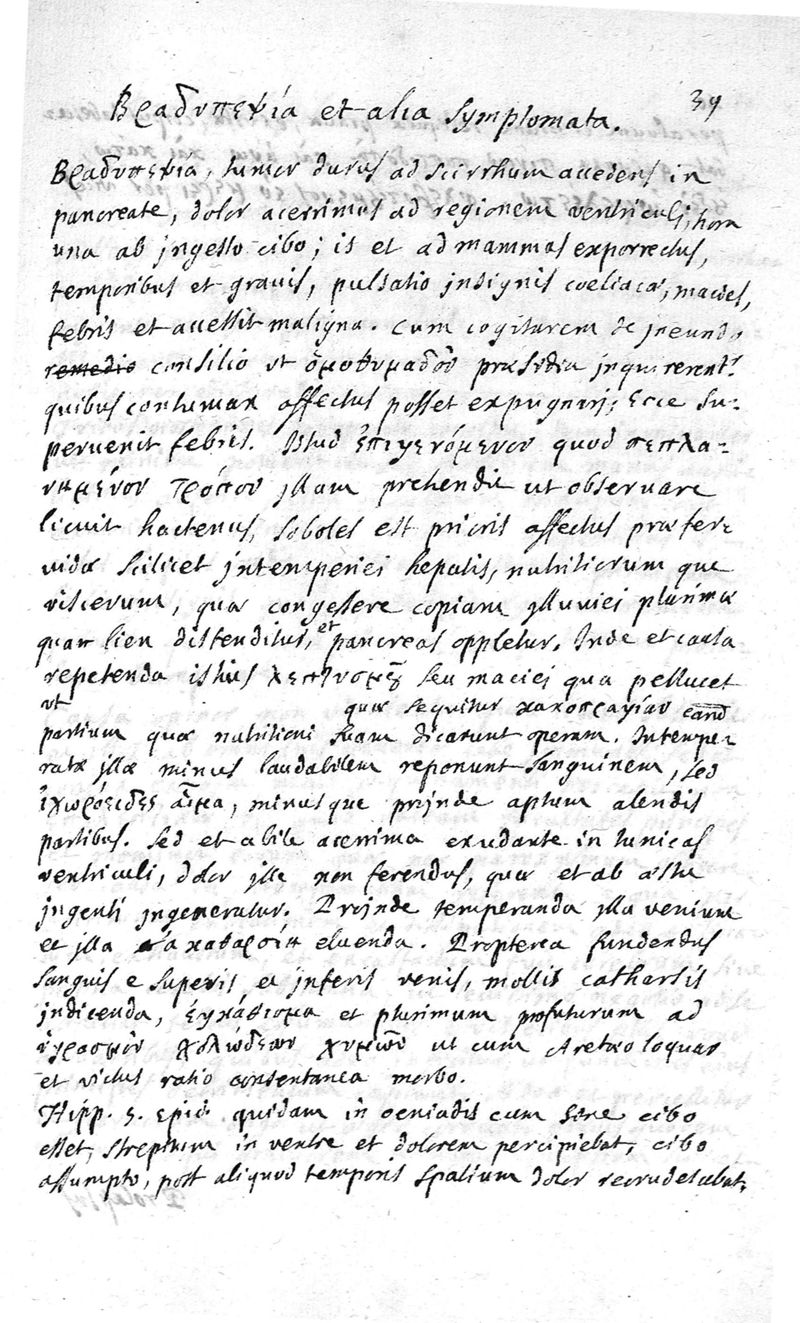 Βραδυπεψία et alia symptomata. 39
Βραδυπεψία, tumor durus ad scirrhum accedens in
pancreate, dolor acerrimus ad regionem ventriculi, hora
una ab ingesto cibo; is et ad mammas exporrectus,
temporibus et gravis, pulsatio insignis coeliacæ, macies,
febris et accessit maligna. Cum cogitarem de ineundo
remedio consilio ut ὁμοθυμαδὸν præsidia inquirerent.
quibus contumax affectus posset expugnari; Ecce su-
pervenit febris. Istud ἐπιγενόμενον quod πεπλα-
νημένου τρόπου illam prehendit ut observare
licuit hactenus, soboles est prioris affectus præfer-
vidæ scilicet intemperiei hepatis, nutritiorum que
viscerum, quæ congessere copiam illuviei plurimæ
quam lien distenditur, et pancreas oppletur. Inde et causa
repetenda istius λεπτυσμοῦ seu maciei qua pellucet
ut quæ sequitur κακοπραγίαν eand
partium quæ nutritioni suam dicarunt operam. Intempe-
ratæ illæ minus laudabilem reponunt sanguinem, sed
ἰχωρόειδες αἷμα, minusque proinde aptum alendis
partibus. Sed et a bile acerrima exudante in tunicas
ventriculi, dolor ille non ferendus, quæ et ab æstu
ingenti ingeneratur. Proinde temperanda illa venium
et illa καθαρσία eluenda. Propterea fundendus
sanguis e superis et inferis venis, mollis catharsis
indicenda, ἐγκάθισμα et plurimum profuturum ad
ὑγρασμὸν χολώδεων χυμῶν ut cum Aretæo loquar
et victus ratio consentanea morbo.
Hipp. 5. Epid. quidam in oeniadis cum sine cibo
esset, streptum in ventre et dolorem percipiebat, cibo
assumpto, post aliquod temporis spatium dolor recrudescebat.